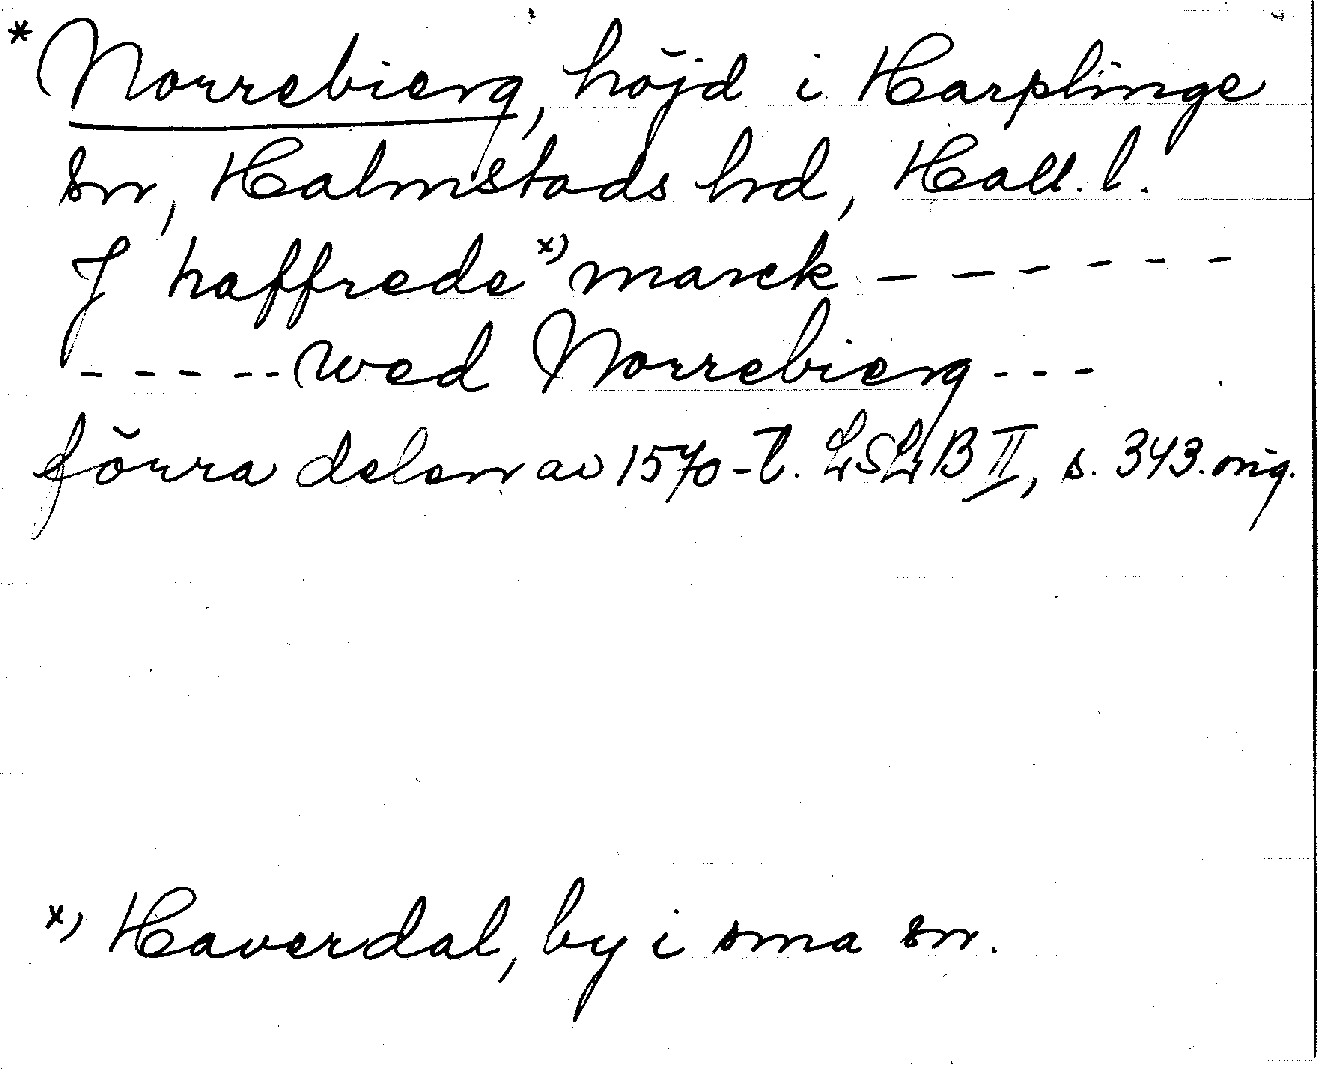 * Norrebierg, höjd i Harplinge
sn, Halmstads hrd, Hall. l.
J haffrede x) marck - - - - - -
- - - - - wed Norrebierg - - -
förra delen av 1570-t. LSLB II, s. 343. orig.
x) Haverdal, by i sma sn.